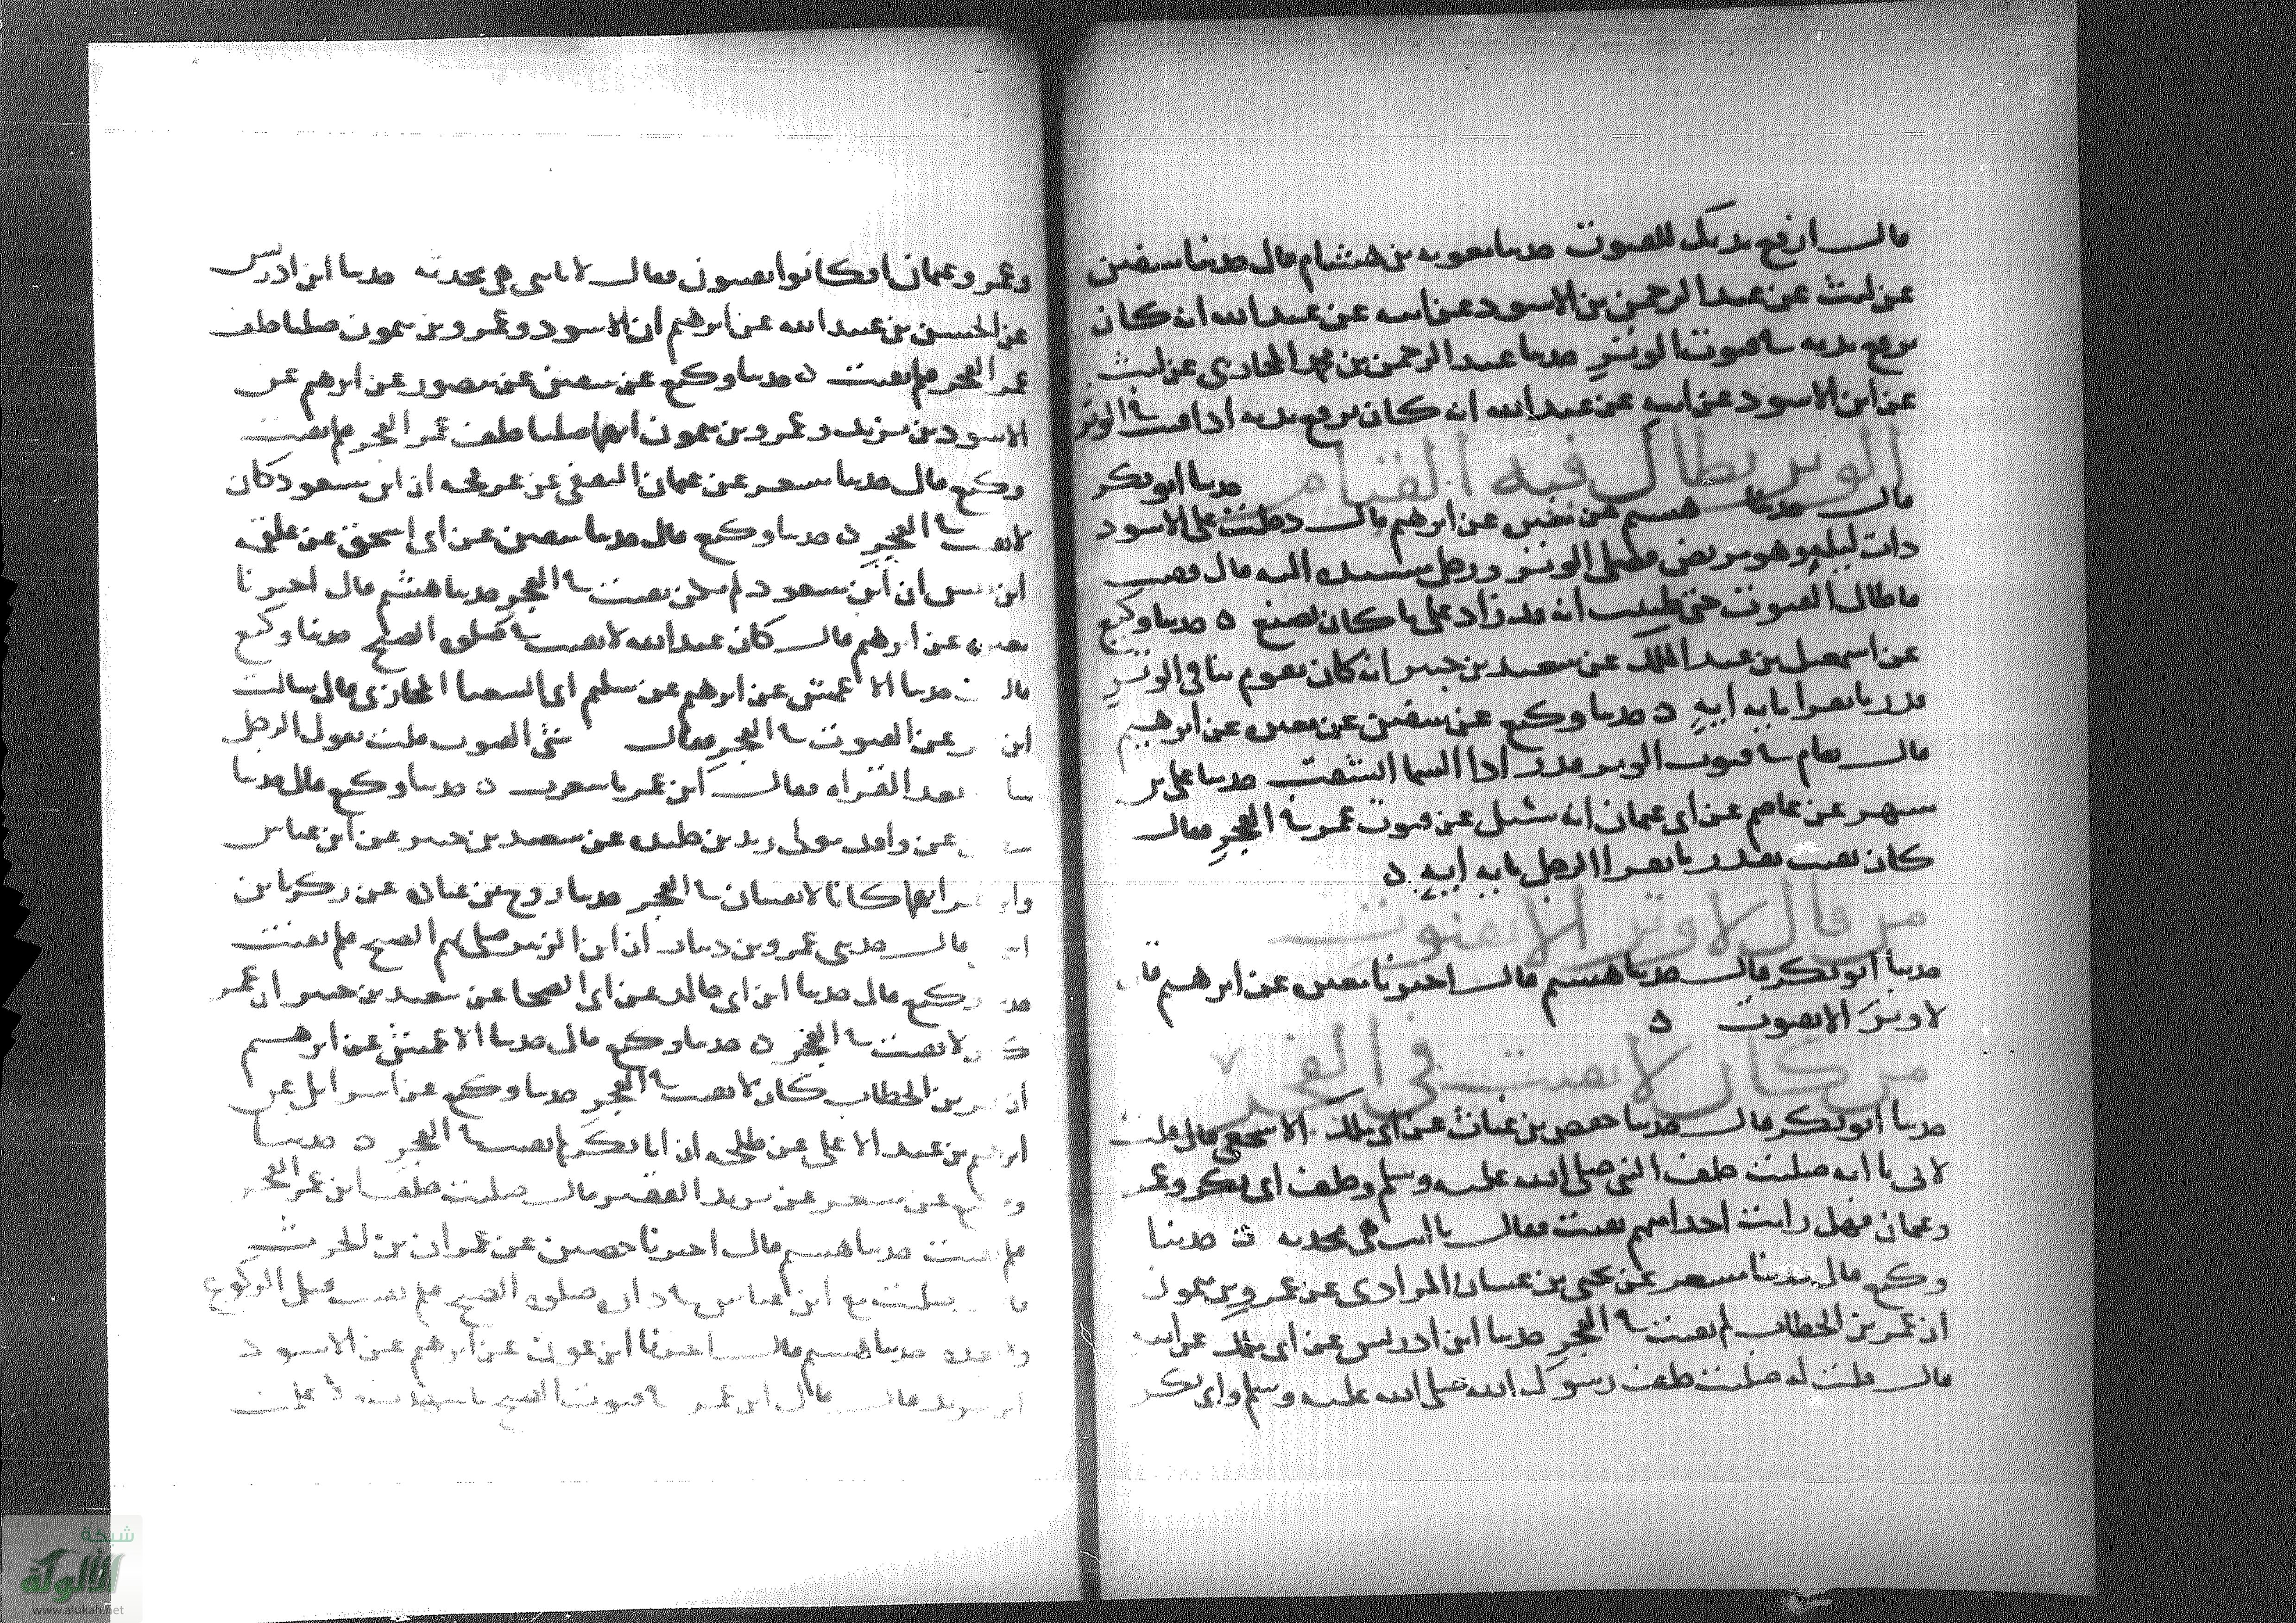 قال ارفع يديك للقنوت حدثنا معوية بن هشام قال حدثنا سفين
عن ليث عن عبد الرحمن بن الاسود عن ابيه عن عبد الله انه كان
يرفع يديه في قنوت الوتر حدثنا عبد الرحمن بن محمد المحاربي عن ليث
عن ابن الاسود عن ابيه عن عبد الله انه كان يرفع يديه اذا قنت في الوتر
الوتر يطال فيه القيام حدثنا ابو بكر
قال حدثنا هشيم عن مغيرة عن ابرهيم قال دخلت على الاسود
ذات ليلة وهو مريض فصلى الوتر ورجل مسنده اليه قال فقنت
فاطال القنوت حتى ظننت انه قد زاد على ما كان يصنع ه حدثنا وكيع
عن اسمعيل بن عبد الملك عن سعيد بن جبير انه كان يقوم بنا في الوتر
قدر ما يقرا ماية اية ه حدثنا وكيع عن سفين عن مغيرة عن ابرهيم
قال يقام في قنوت الوتر قدر اذا السما انشقت حدثنا علي بن
مسهر عن عاصم عن ابي عثمان انه سئل عن قنوت عمر في الفجر فقال
كان يقنت بقدر ما يقرا الرجل ماية اية ه
من قال لا وتر الا بقنوت
حدثنا ابو بكر قال حدثنا هشيم قال اخبرنا مغيرة عن ابرهيم قال
لا وتر الا بقنوت ه
من كان لا يقنت في الفجر
حدثنا ابو بكر قال حدثنا حفص بن غياث عن ابي ملك الاشجعي قال قلت
لابي يا ابه صليت خلف النبي صلى الله عليه وسلم وخلف ابي بكر وعمر
وعثمان فهل رايت احدا منهم يقنت فقال يا بني هي محدثة ه حدثنا
وكيع قال حدثنا مسعر عن يحيى بن غسان المرادي عن عمرو بن ميمون
ان عمر بن الخطاب لم يقنت في الفجر حدثنا ابن ادريس عن ابي ملك عن ابيه
قال قلت له صليت خلف رسول الله صلى الله عليه وسلم وابي بكر
وعمر وعثمان افكانوا يقنتون فقال لا يا بني هي محدثة حدثنا ابن ادريس
عن الحسن بن عبيد الله عن ابرهيم ان الاسود وعمرو بن ميمون صليا خلف
عمر الفجر فلم يقنت ه حدثنا وكيع عن سفين عن منصور عن ابرهيم عن
الاسود بن يزيد وعمرو بن ميمون انهما صليا خلف عمر الفجر فلم يقنت
وكيع قال حدثنا مسعر عن عثمان الثقفي عن عرفجة ان ابن مسعود كان
لا يقنت في الفجر ه حدثنا وكيع قال حدثنا سفين عن ابي اسحق عن علقمة
ابن قيس ان ابن مسعود لم يكن يقنت في الفجر حدثنا هشيم قال اخبرنا
مغيرة عن ابرهيم قال كان عبد الله لا يقنت في صلوة الصبح حدثنا وكيع
قال حدثنا الاعمش عن ابرهيم عن سليم ابي الشعثا المحاربي قال سالت
ابن عمر عن القنوت في الفجر فقال شي القنوت قلت يقول الرجل
بعد القراه فقال ابن عمر ما شعرت ه حدثنا وكيع قال حدثنا
عن واقد مولى زيد بن خليدة عن سعيد بن جبير عن ابن عباس
وابن عمر انهما كانا لا يقنتان في الفجر حدثنا روح بن عبادة عن زكريا بن
قال حدثني عمرو بن دينار ان ابن الزبير صلى بهم الصبح فلم يقنت
حدثنا وكيع قال حدثنا ابن ابي خالد عن ابي الضحى عن سعيد بن جبير ان عمر
كان لا يقنت في الفجر ه حدثنا وكيع قال حدثنا الاعمش عن ابرهيم
ان عمر بن الخطاب كان لا يقنت في الفجر حدثنا وكيع عن اسرائيل عن
ابرهيم بن عبد الاعلى عن طلحة ان ابا بكر لم يقنت في الفجر ه حدثنا
وكيع عن مسعر عن يزيد الفقير قال صليت خلف ابن عمر الفجر
فلم يقنت حدثنا هشيم قال اخبرنا حصين عن عمران بن الحرث
قال صليت مع ابن عباس في داره صلوة الصبح فلم يقنت قبل الركوع
ولا بعده حدثنا هشيم قال اخبرنا ابن عون عن ابرهيم عن الاسود
قال ابن عمر في قنوت الصبح